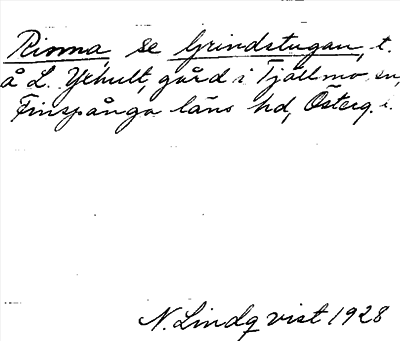 Risma se Grindstugan, t.
å L. Yxhult, gård i Tjällmo sn,
Finspånga läns hd, Österg. i.
N. Lindqvist 1928